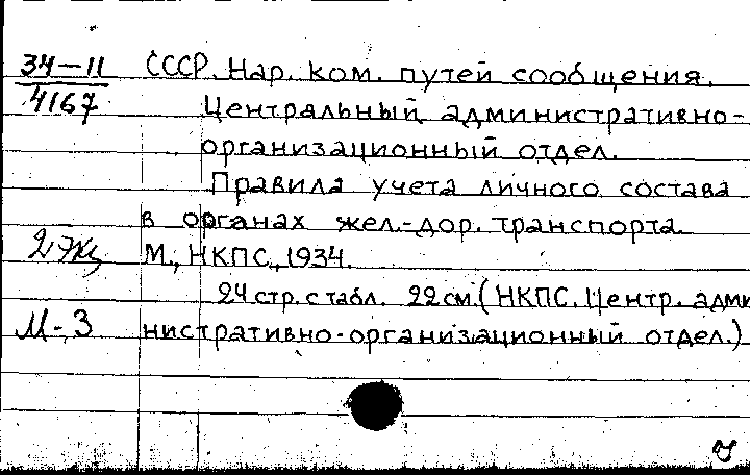 34-11 СССР. Нар. ком. путей сообщения.
4167 Центральный административно-
организационный отдел.
Правила учета личного состава
в органах жел.-дор. транспорта.
2 Экз М., НКПС, 1934.
24 стр. с табл. 22 см. (НКПС. Центр. адми
М-3 нистративно-организационный отдел.)